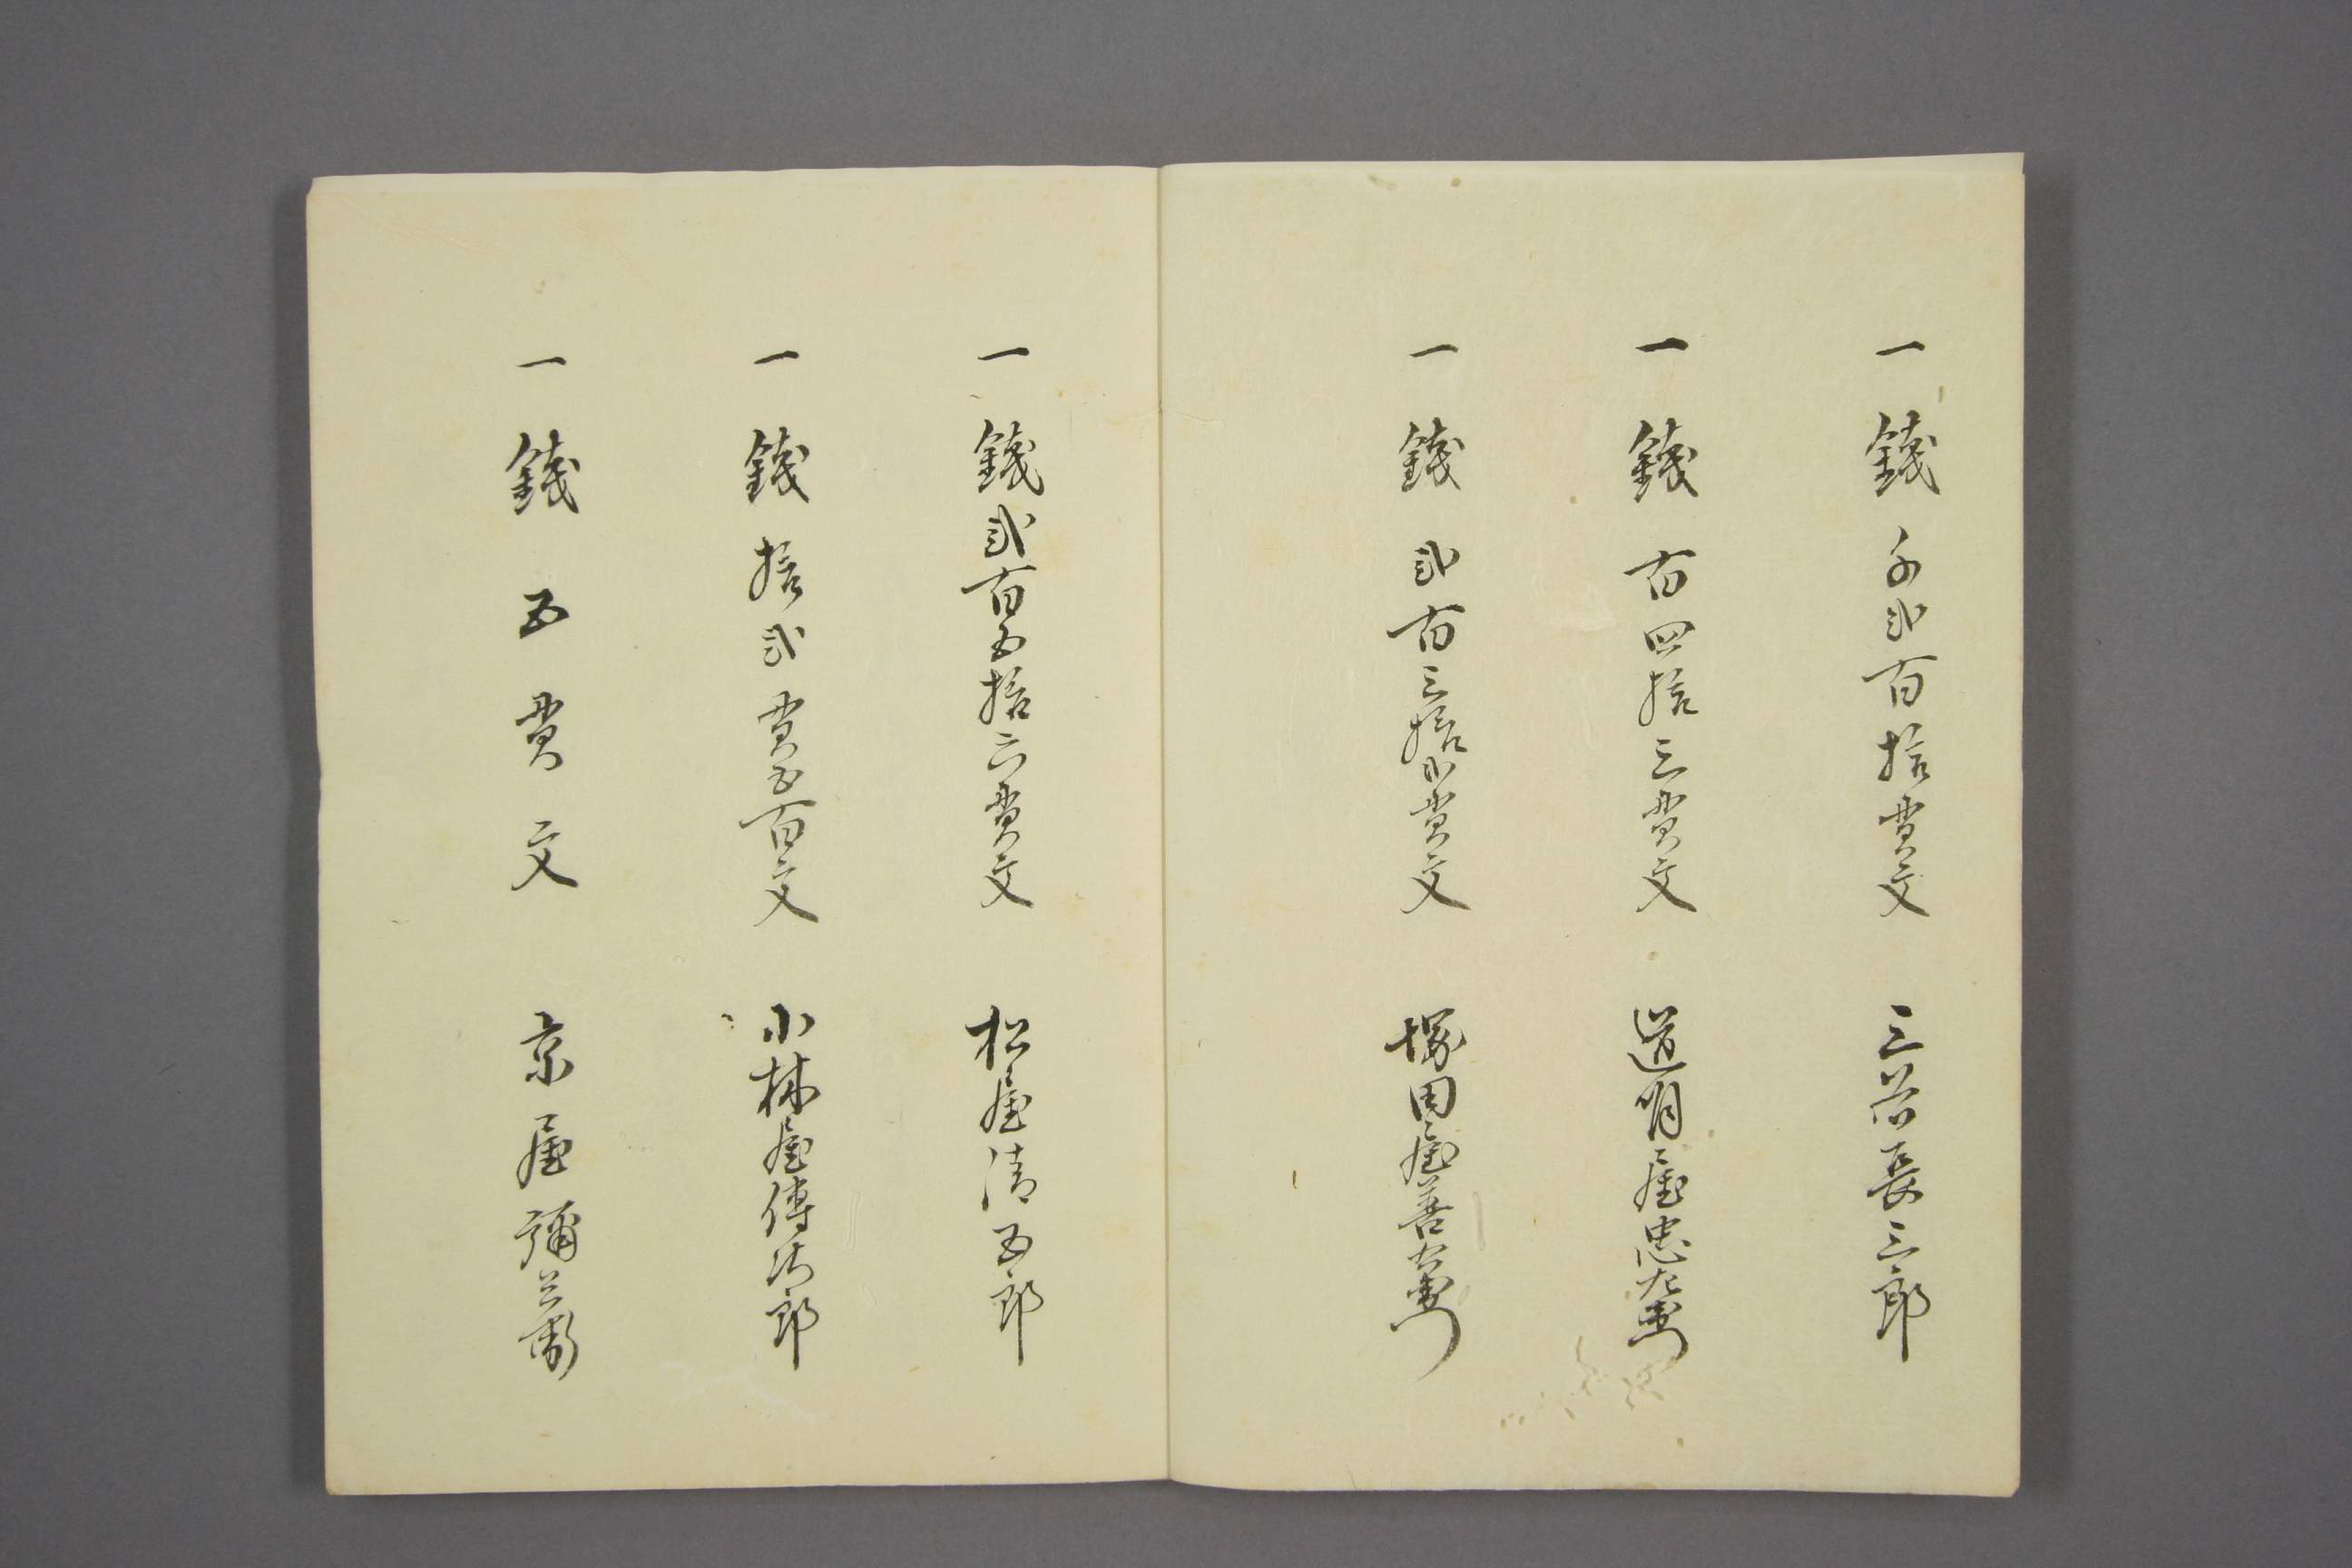 一 錢 千貳百拾貫文 三谷長三郎
一 錢 百四拾三貫文 道明屋忠左衛門
一 錢 貳百三拾貫文 塚田屋善右衛門
一 錢貳百五拾六貫文 松屋清五郎
一 錢 拾貳貫五百文 小林屋傳次郎
一 錢 五貫文 京屋彌兵衛